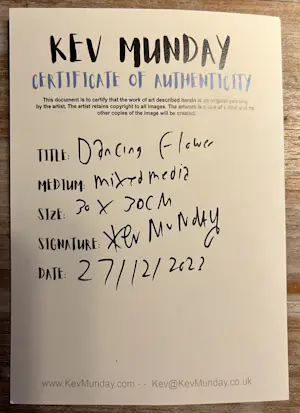 KEV MUNDAY
CERTIFICATE OF AUTHENTICITY
This document is to certify that the work of art described herein is an original painting
by the artist. The artist retains copyright to all images. The artwork is a one of a kind and no
other copies of the image will be created.
TITLE: Dancing Flower
MEDIUM: mixed media
SIZE: 30 X 30CM
SIGNATURE: Kev Munday
DATE: 27/12/2023
www.KevMunday.com - - Kev@KevMunday.co.uk